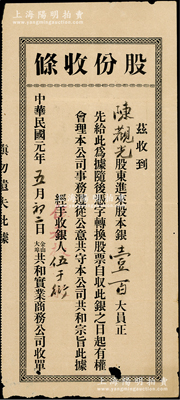 上海陽明拍賣
股份收條
茲收到
陳觀光股東進來股本銀壹百大員正
先給此為據隨後憑字轉換股票自取此銀之日起有權
會理本公司事務遵從公意共守本公司共和宗旨此據
經手收銀人伍于衍
中華民國元年五月初二日金山大埠共和實業商務公司收單
慎勿遺失此據